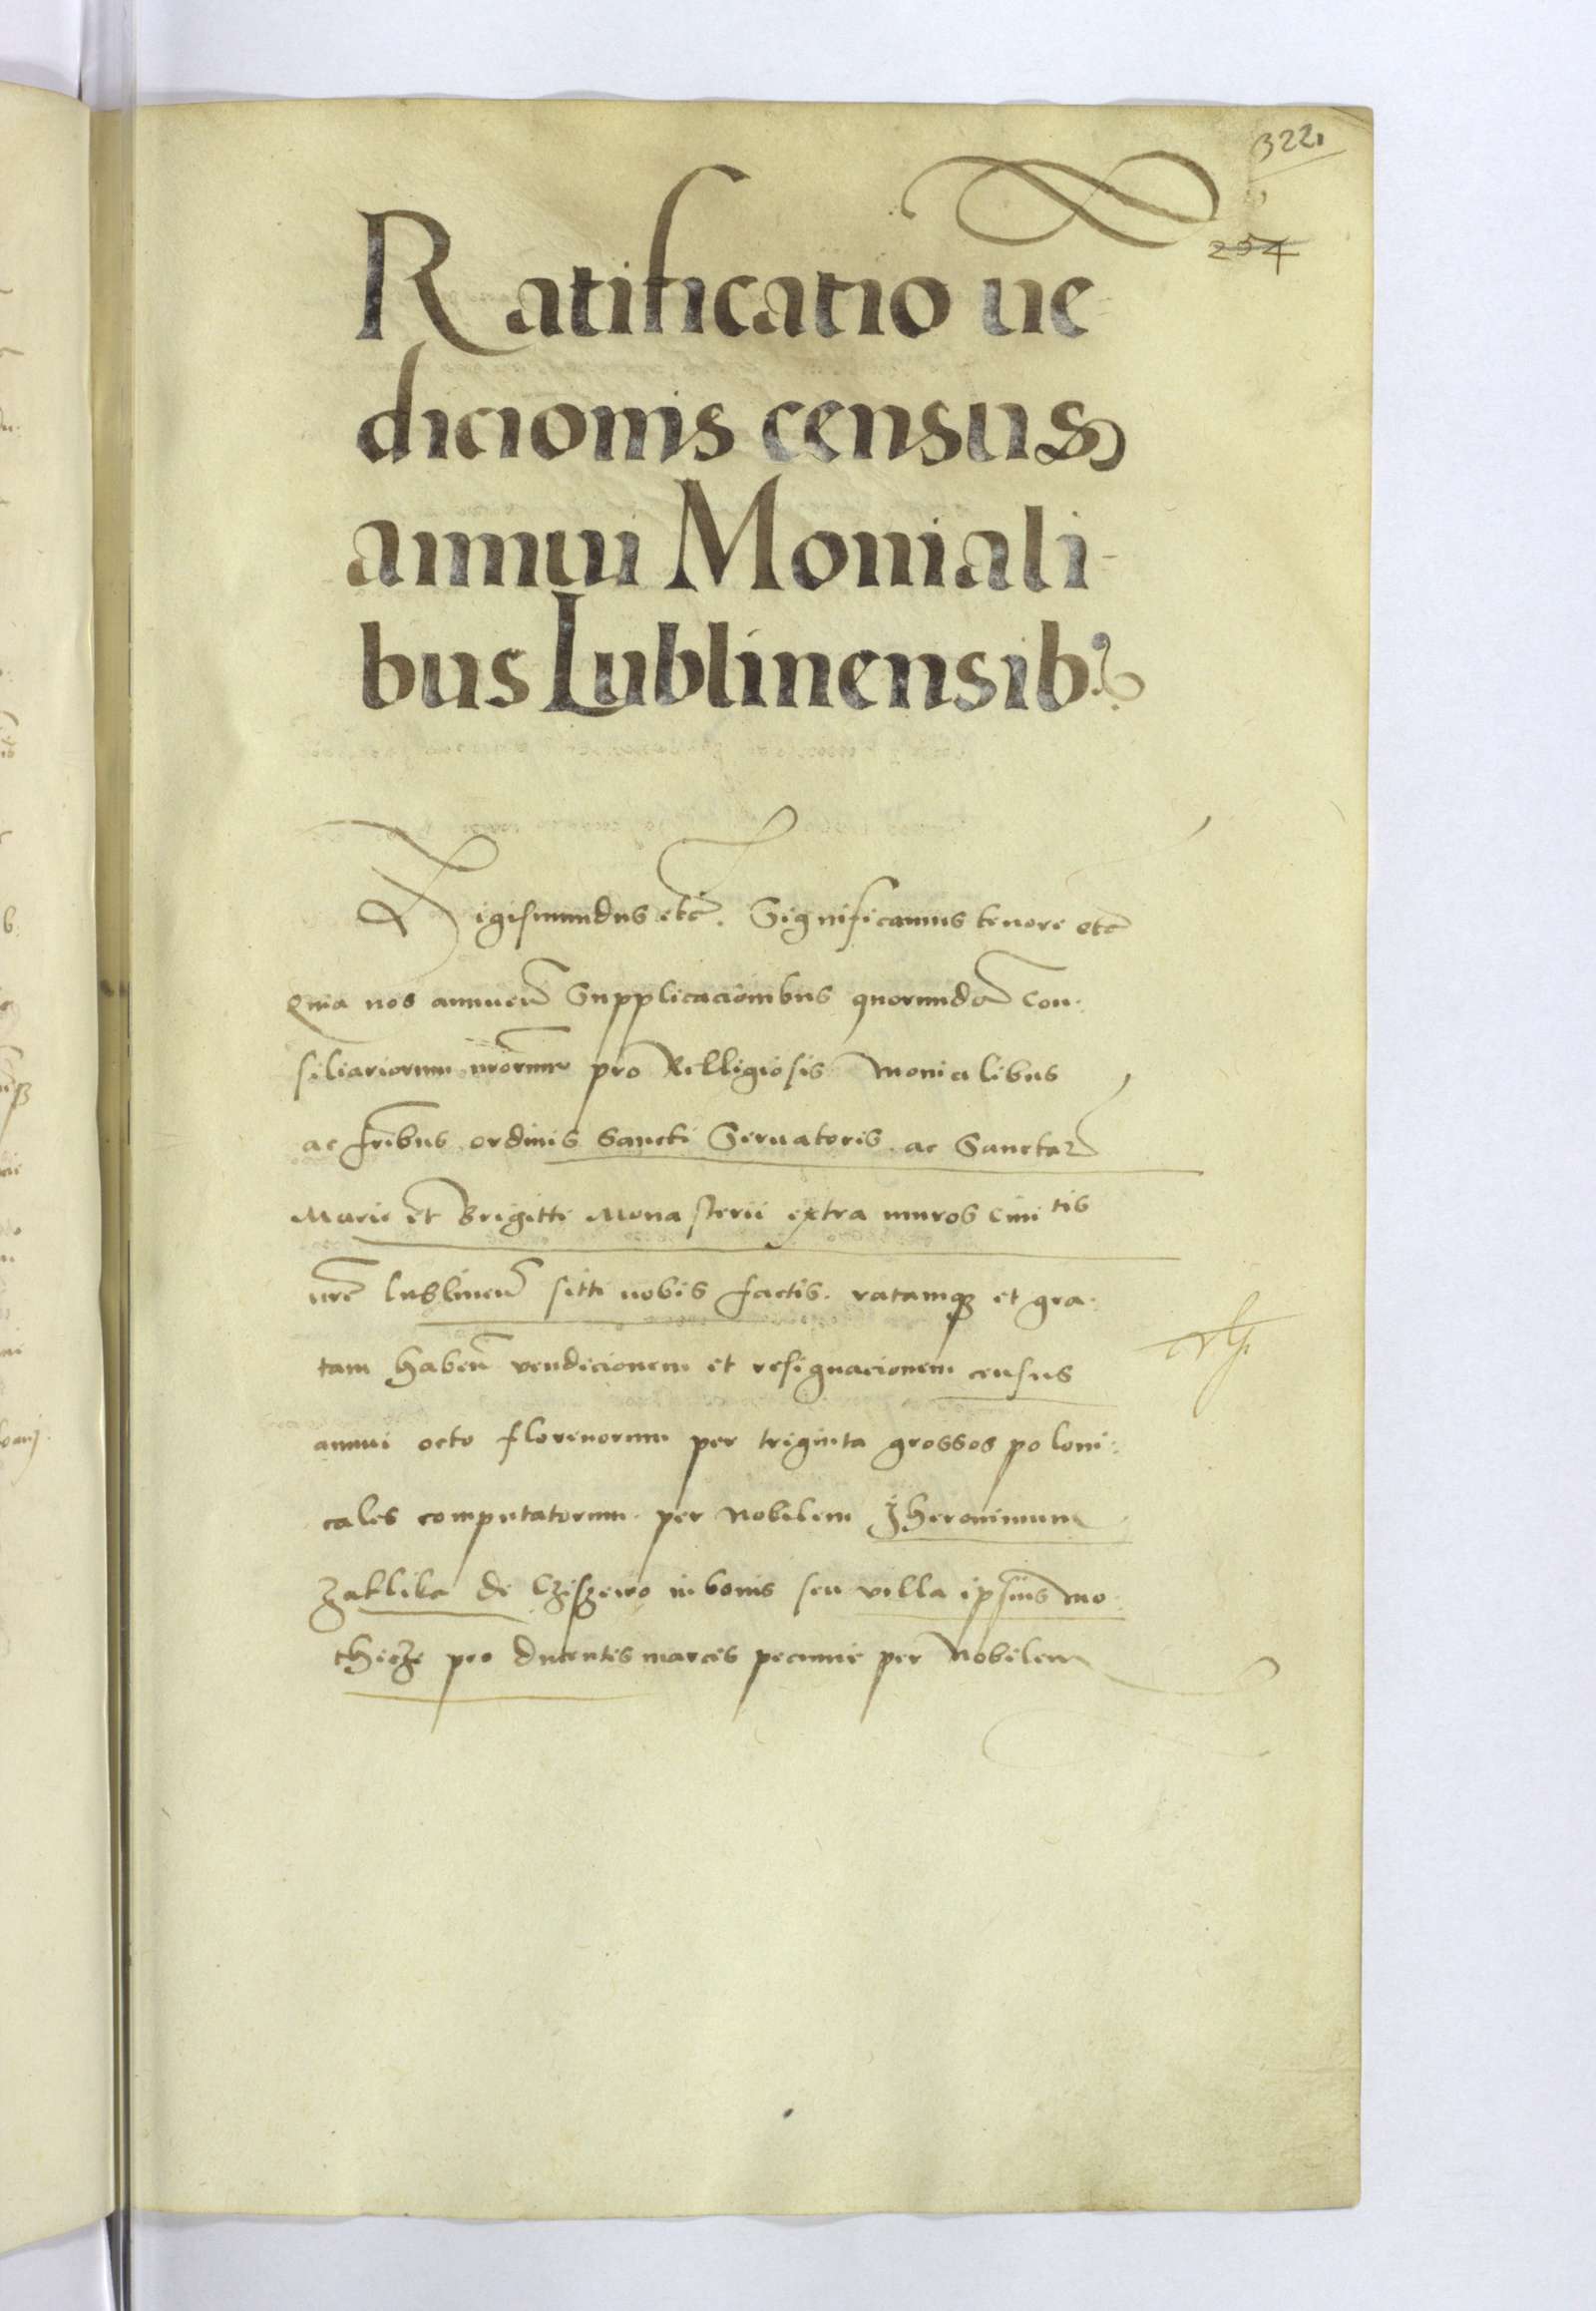 322
254
Ratificatio ve
dicionis census
annui Moniali-
bus Lublinensib9
Sigismundus etc. Significamus tenore etc
Quia nos annuen Supplicacionibus quorundã Con-
siliariorum nrorum pro Relligiosis Monialibus
ac fribus ordinis Sancti Servatoris ac Sanctar
Marie et Brigitte Monasterii extra muros Civitis
nre lublinen sitti nobis factis. ratamqz et gra-
tam haben vendicionem et resignacionem census
annui octo florenorum per triginta grossos poloni-
cales computatorum. per Nobilem Jheronimum
Zaklika de Cziszewo in bonis seu villa ipsius Mo-
thicze pro ducentis marcis pecunie per Nobilem